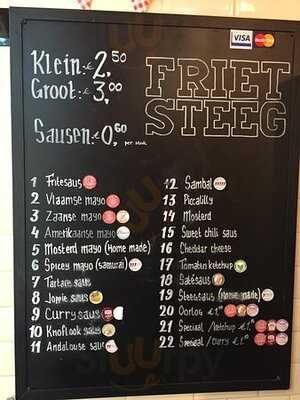 VISA MasterCard
Klein:€2,50
Groot:€3,00
FRIET
STEEG
Sausen:€0,60 per stuk
1 Fritesaus
2 Vlaamse mayo
3 Zaanse mayo
4 Amerikaanse mayo
5 Mosterd mayo (Home made)
6 Spicey mayo (samurai)
7 Tartare saus
8 Joppie saus
9 Curry saus
10 Knoflook saus
11 Andalouse saus
12 Sambal
13 Piccalilly
14 Mosterd
15 Sweet chili saus
16 Cheddar cheese
17 Tomaten ketchup
18 Satésaus
19 Steegsaus (Home made)
20 Oorlog €1.-
21 Speciaal /ketchup €1.-
22 Speciaal /curry €1.-